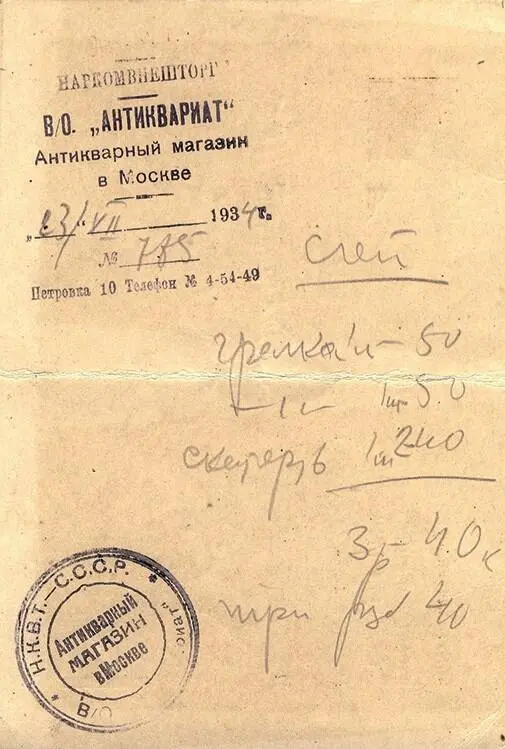 НАРКОМВНЕШТОРГ
В/О. „АНТИКВАРИАТ“
Антикварный магазин
в Москве
„23/“ VII 1934 г.
№ 785
Петровка 10 Телефон № 4-54-49
Счет
грелка 1 - 50
-"- 1 шт 50
скатерть 1 ш 240
3р - 40 к
три руб 40
Н.К.В.Т.-С.С.С.Р.
В/О
иат"
Антикварный
МАГАЗИН
в Москве